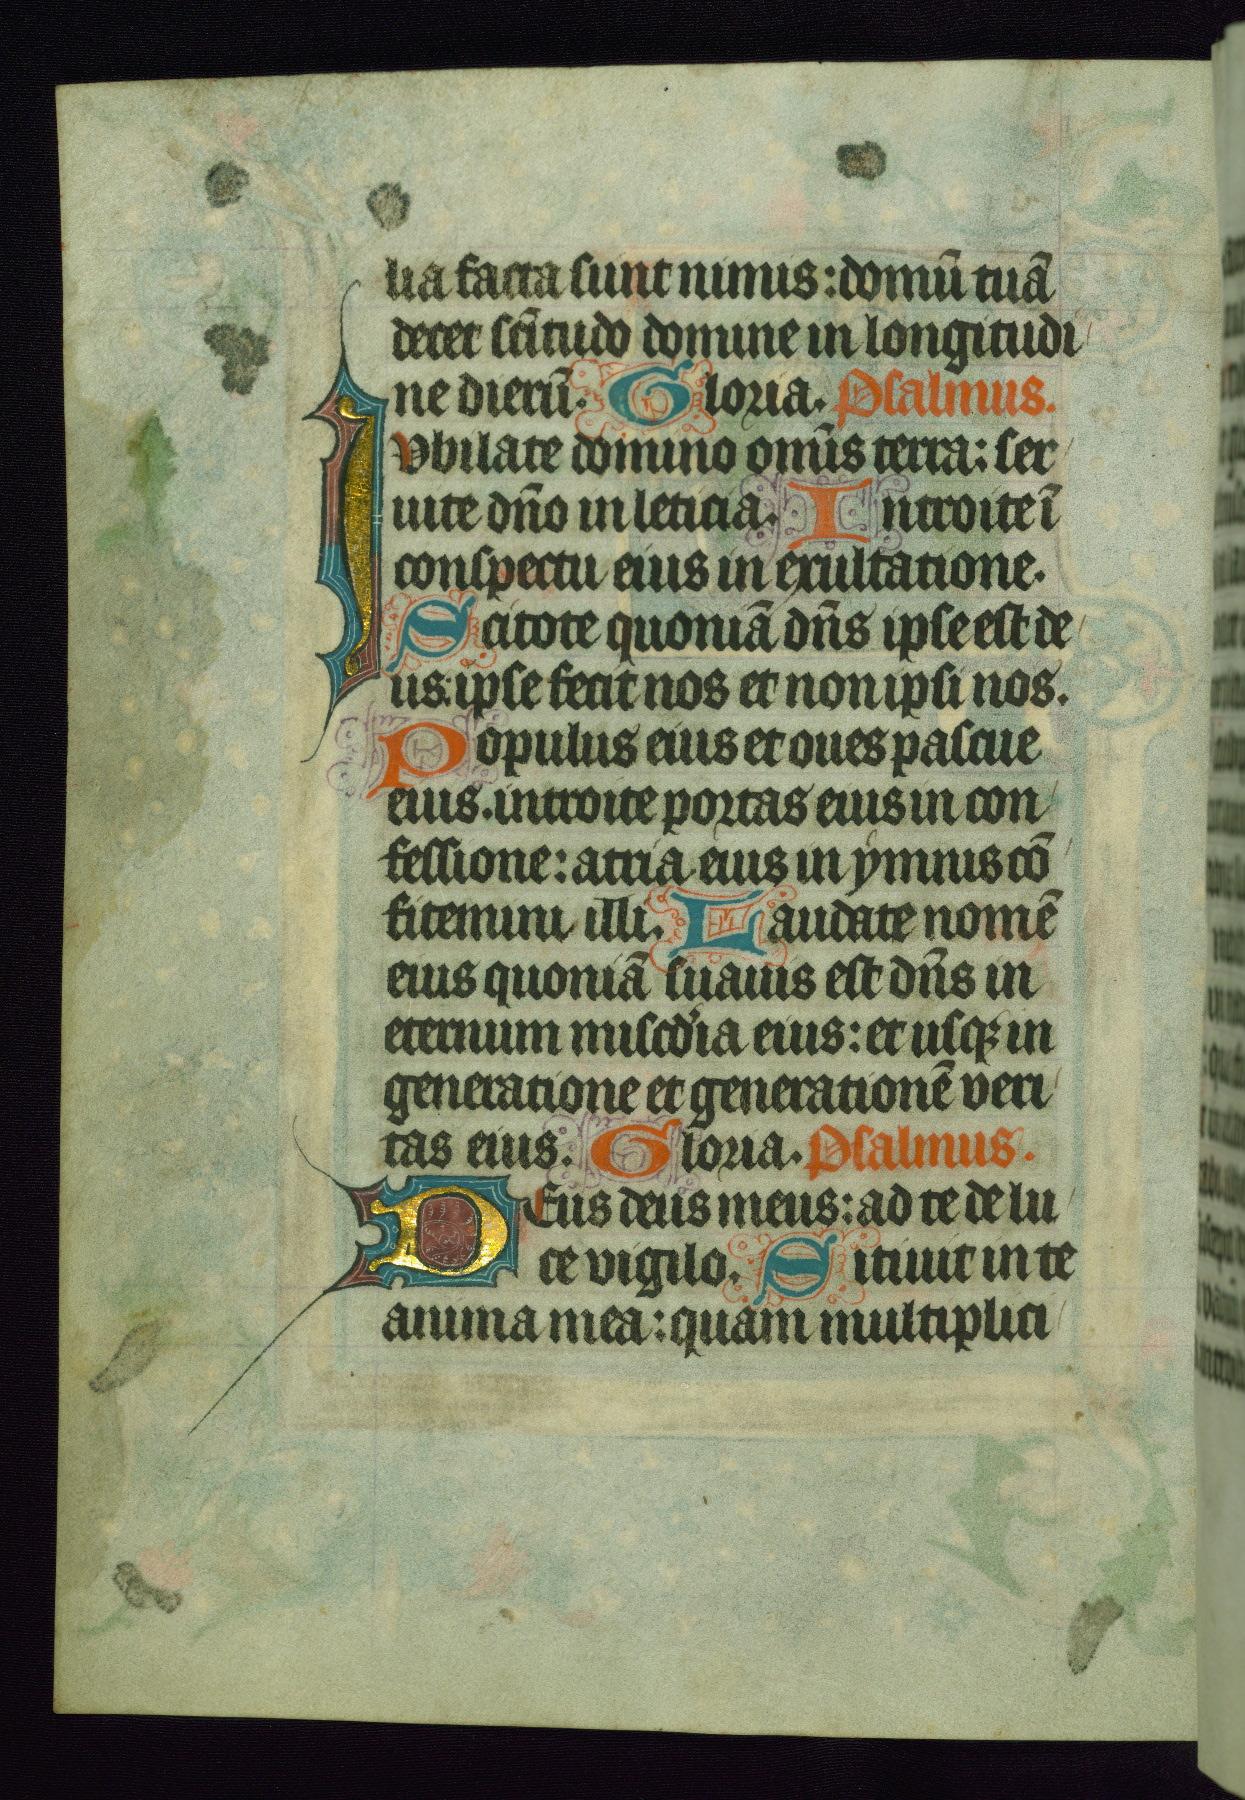 lia facta sunt nimis: domū tuā
decet sc̄itudo domine in longitudi
ne dierū. Gloria. Psalmus.
IVbilate domino om̄is terra: ser
uite dn̄o in leticia. Introite ī
conspectu eius in exultatione.
Scitote quoniā dn̄s ipse est de
us: ipse fecit nos et non ipsi nos.
Populus eius et oues pascue
eius. introite portas eius in con
fessione: atria eius in ymnis cō
fitemini illi. Laudate nomē
eius quoniā suauis est dn̄s in
eternum misc̄dia eius: et usqꝫ in
generatione et generationē veri
tas eius. Gloria. Psalmus.
DEus deus meus: ad te de lu
ce vigilo. Sitiuit in te
anima mea: quam multiplici